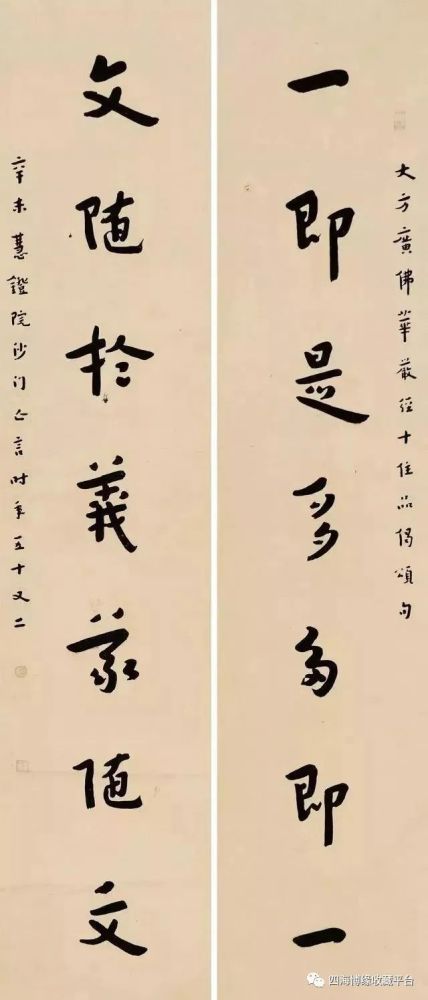 大方廣佛華嚴經十住品偈頌句
一即是多多即一
文随於義義随文
辛未慧證院沙门亡言时年五十又二
四海博缘收藏平台